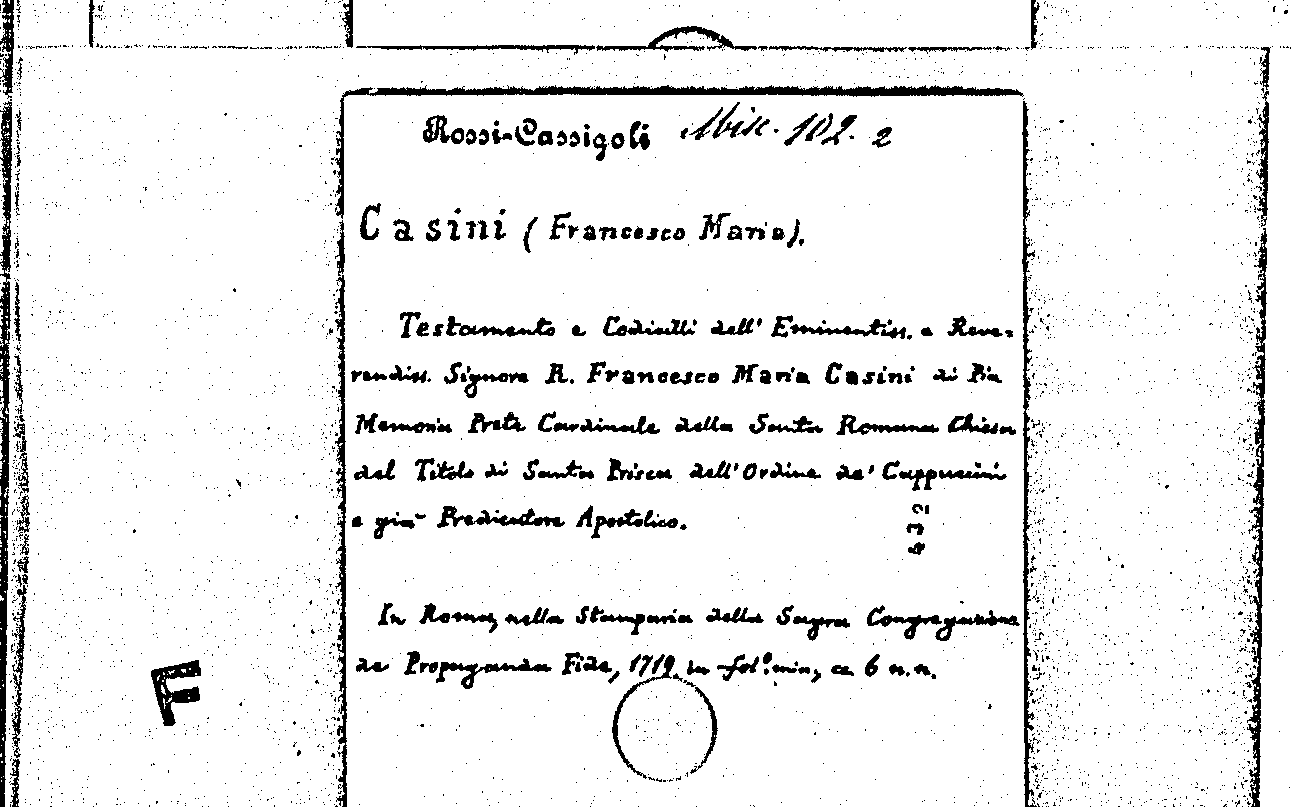 Rossi-Cassigoli Misc. 102. 2
Casini (Francesco Maria).
Testamento e Codicilli dell' Eminentiss. e Reve-
rendiss. Signore R. Francesco Maria Casini di Pia
Memoria Prete Cardinale della Santa Romana Chiesa
del Titolo di Santa Prisca dell' Ordine de' Cappuccini
e già Predicatore Apostolico.
432
In Roma, nella Stamparia della Sagra Congregazione
de Propaganda Fide, 1719. in fol.º min., cc. 6 n. n.
F